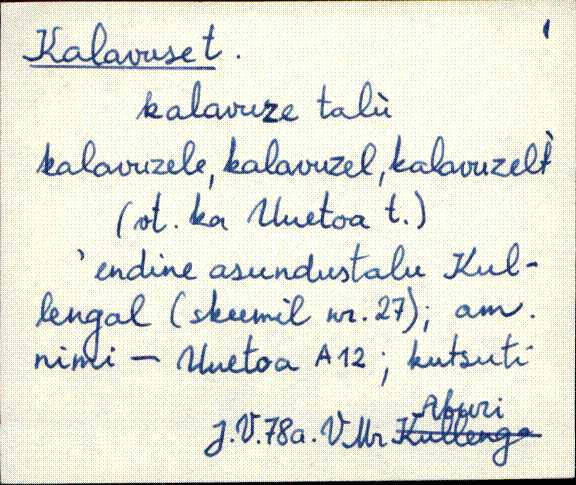 Kalavuse t.
kalavuze talù
kalavuzele, kalavuzel, kalavuzelt
(vt. ka Uuetoa t.)
'endine asundustalu Kul-
lengal (skeemil nr. 27); am.
nimi – Uuetoa A12; kutsuti
Aburi
J.V. 78a. V.Mr Kullenga